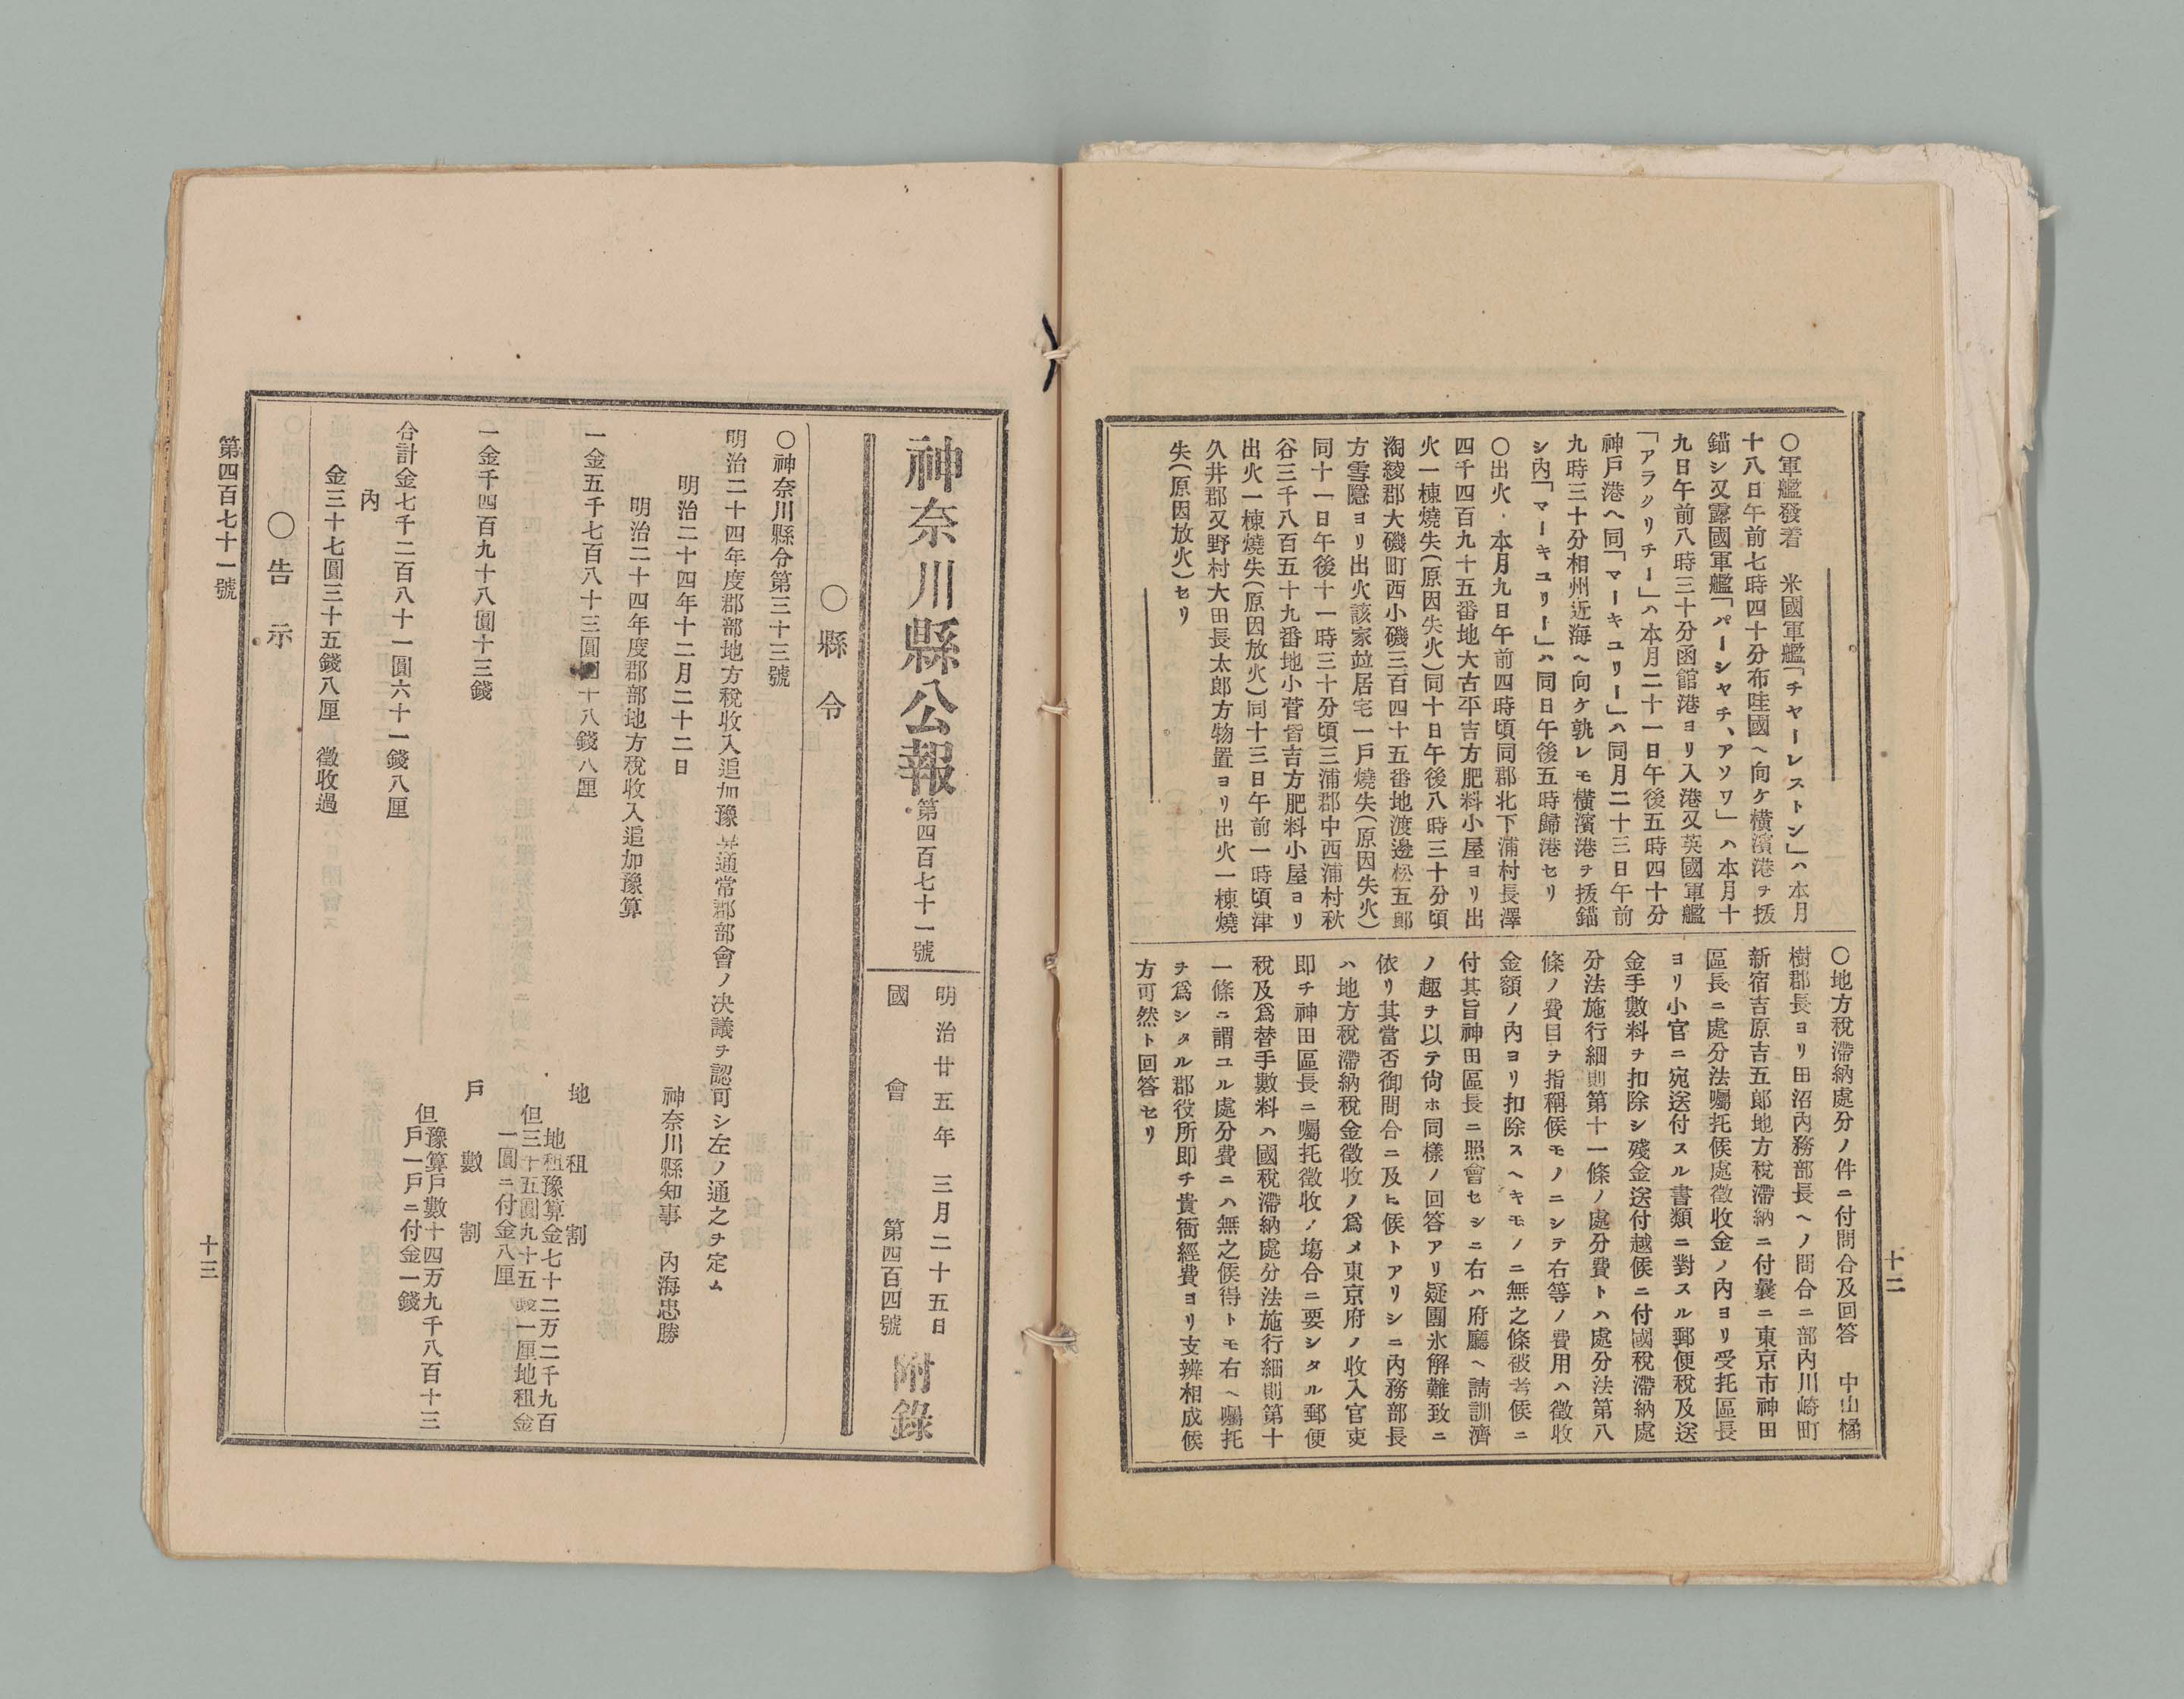 十二
○軍艦發着　米國軍艦「チヤーレストン」ハ本月
十八日午前七時四十分布哇國ヘ向ケ橫濱港ヲ拔
錨シ又露國軍艦「パーシヤチ、アソワ」ハ本月十
九日午前八時三十分函館港ヨリ入港又英國軍艦
「アラクリチー」ハ本月二十一日午後五時四十分
神戸港ヘ同「マーキユリー」ハ同月二十三日午前
九時三十分相州近海ヘ向ケ孰レモ橫濱港ヲ拔錨
シ內「マーキユリー」ハ同日午後五時歸港セリ
○出火　本月九日午前四時頃同郡北下浦村長澤
四千四百九十五番地大古平吉方肥料小屋ヨリ出
火一棟燒失(原因失火)同十日午後八時三十分頃
淘綾郡大磯町西小磯三百四十五番地渡邊松五郎
方雪隱ヨリ出火該家並居宅一戸燒失(原因失火)
同十一日午後十一時三十分頃三浦郡中西浦村秋
谷三千八百五十九番地小菅皆吉方肥料小屋ヨリ
出火一棟燒失(原因放火)同十三日午前一時頃津
久井郡又野村大田長太郎方物置ヨリ出火一棟燒
失(原因放火)セリ
○地方稅滯納處分ノ件ニ付問合及回答　中山橘
樹郡長ヨリ田沼內務部長ヘノ問合ニ部內川崎町
新宿吉原吉五郎地方稅滯納ニ付曩ニ東京市神田
區長ニ處分法囑托候處徵收金ノ內ヨリ受托區長
ヨリ小官ニ宛送付スル書類ニ對スル郵便稅及送
金手數料ヲ扣除シ殘金送付越候ニ付國稅滯納處
分法施行細則第十一條ノ處分費トハ處分法第八
條ノ費目ヲ指稱候モノニシテ右等ノ費用ハ徵收
金額ノ內ヨリ扣除スヘキモノニ無之條被考候ニ
付其旨神田區長ニ照會セシニ右ハ府廳ヘ請訓濟
ノ趣ヲ以テ尙ホ同樣ノ回答アリ疑團氷解難致ニ
依リ其當否御問合ニ及ヒ候トアリシニ內務部長
ハ地方稅滯納稅金徵收ノ爲メ東京府ノ收入官吏
即チ神田區長ニ囑托徵收ノ塲合ニ要シタル郵便
稅及爲替手數料ハ國稅滯納處分法施行細則第十
一條ニ謂ユル處分費ニハ無之候得トモ右ヘ囑托
ヲ爲シタル郡役所即チ貴衙經費ヨリ支辨相成候
方可然ト回答セリ
神奈川縣公報第四百七十一號
明治廿五年　三月二十五日
國會　第四百四號
附錄
○縣令
○神奈川縣令第三十三號
明治二十四年度郡部地方稅收入追加豫算通常郡部會ノ決議ヲ認可シ左ノ通之ヲ定ム
明治二十四年十二月二十二日　神奈川縣知事　內海忠勝
明治二十四年度郡部地方稅收入追加豫算
一金五千七百八十三圓四十八錢八厘　地租割
地租豫算金七十二万二千九百
但三十五圓九十五錢一厘地租金
一圓ニ付金八厘
一金千四百九十八圓十三錢　戸數割
豫算戸數十四万九千八百十三
但
戸一戸ニ付金一錢
合計金七千二百八十一圓六十一錢八厘
內
金三十七圓三十五錢八厘　徵收過
○告示
第四百七十一號
十三